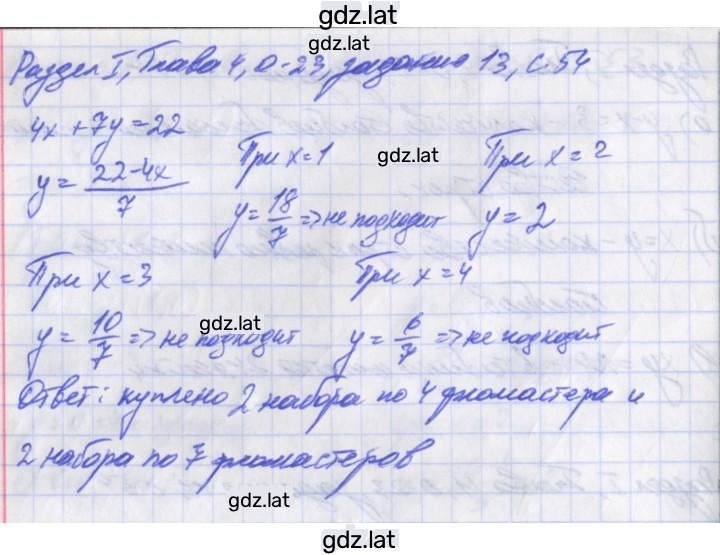 gdz.lat
Раздел I, Глава 4, О-23, задание 13, с.54
4x + 7y = 22
y = (22 - 4x)/7
При x = 1
gdz.lat
y = 18/7 => не подходит
При x = 2
y = 2
При x = 3
y = 10/7 => не подходит
gdz.lat
При x = 4
y = 6/7 => не подходит
Ответ: куплено 2 набора по 4 фломастера и
2 набора по 7 фломастеров
gdz.lat
gdz.lat